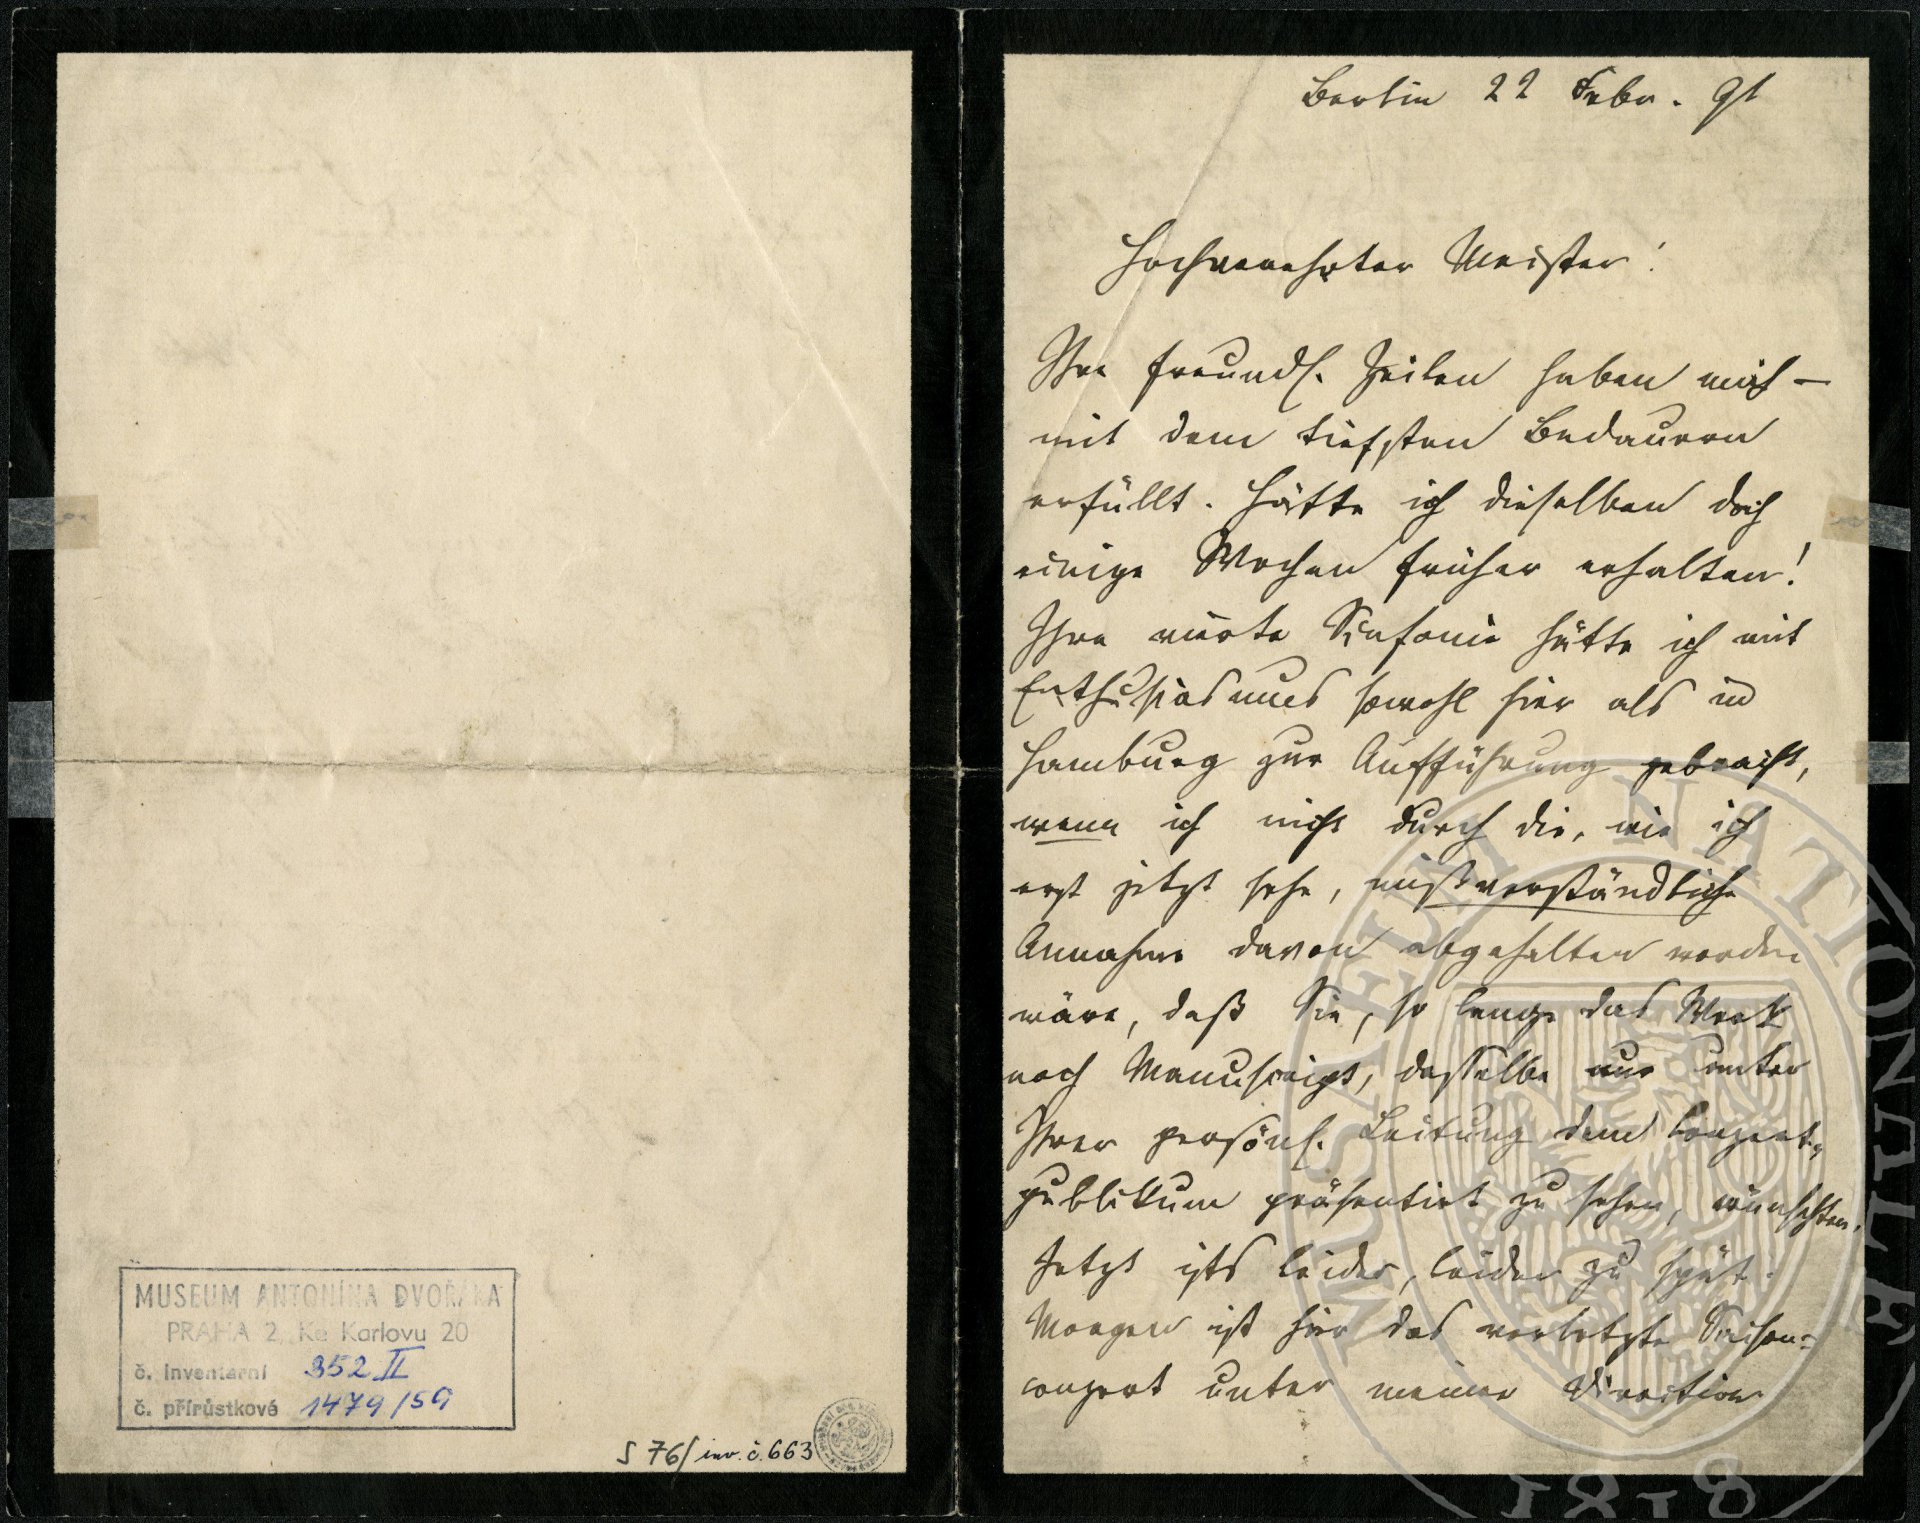 MUSEUM ANTONÍNA DVOŘÁKA
PRAHA 2, Ke Karlovu 20
č. inventární 352 II
č. přírůstkové 1479/59
S 76/ inv. č. 663
Berlin 22 Febr. 91
Hochverehrter Meister!
Ihre freundl. Zeilen haben mich –
mit dem tiefsten Bedauern
erfüllt. Hätte ich dieselben doch
einige Wochen früher erhalten!
Ihre vierte Sinfonie hätte ich mit
Enthusiasmus sowohl hier als in
Hamburg zur Aufführung gebracht,
wenn ich nicht durch die, wie ich
erst jetzt sehe, mißverständliche
Annahme davon abgehalten worden
wäre, daß Sie, so lange das Werk
noch Manuscript, dasselbe nur unter
Ihrer persönl. Leitung dem Conzert-
publikum präsentirt zu sehen, wünschten.
Jetzt ists leider, leider zu spät.
Morgen ist hier das vorletzte Saison-
conzert unter meiner Direction
MUSAEUM NATIONALE
1818